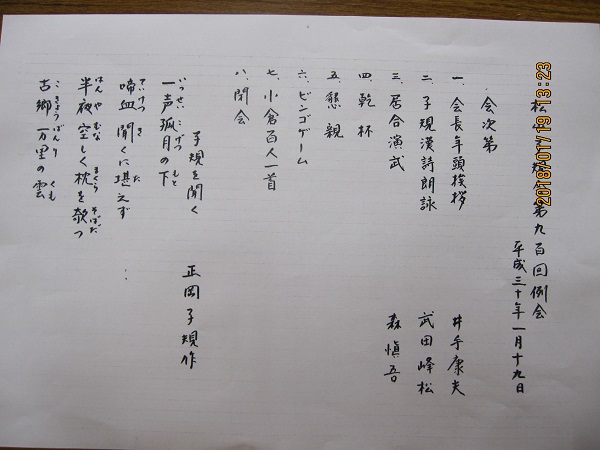 松山子規会第九百回例会
平成三十年一月十九日
会次第
一、会長年頭挨拶 井手康夫
二、子規漢詩朗詠 武田峰松
三、居合演武 森慎吾
四、乾杯
五、懇親
六、ビンゴゲーム
七、小倉百人一首
八、閉会
子規を聞く 正岡子規作
いっせい こげつ もと
一声孤月の下
ていけつ き た
啼血聞くに堪えず
はんや むな まくら そばだ
半夜空しく枕を欹つ
こきょうばんり くも
古郷万里の雲
2018/01/19 13:23